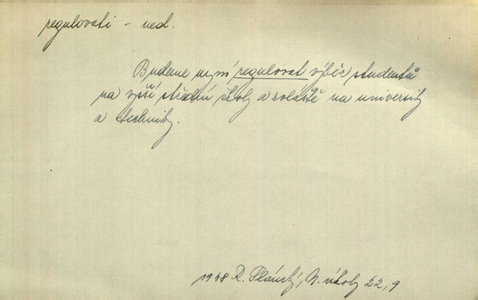 regulovati - ned.
Budeme nyní regulovat výběr studentů
na vyšší střední školy a zvláště na university
a techniky.
1948 R. Plánský, N. úkoly 22, 9